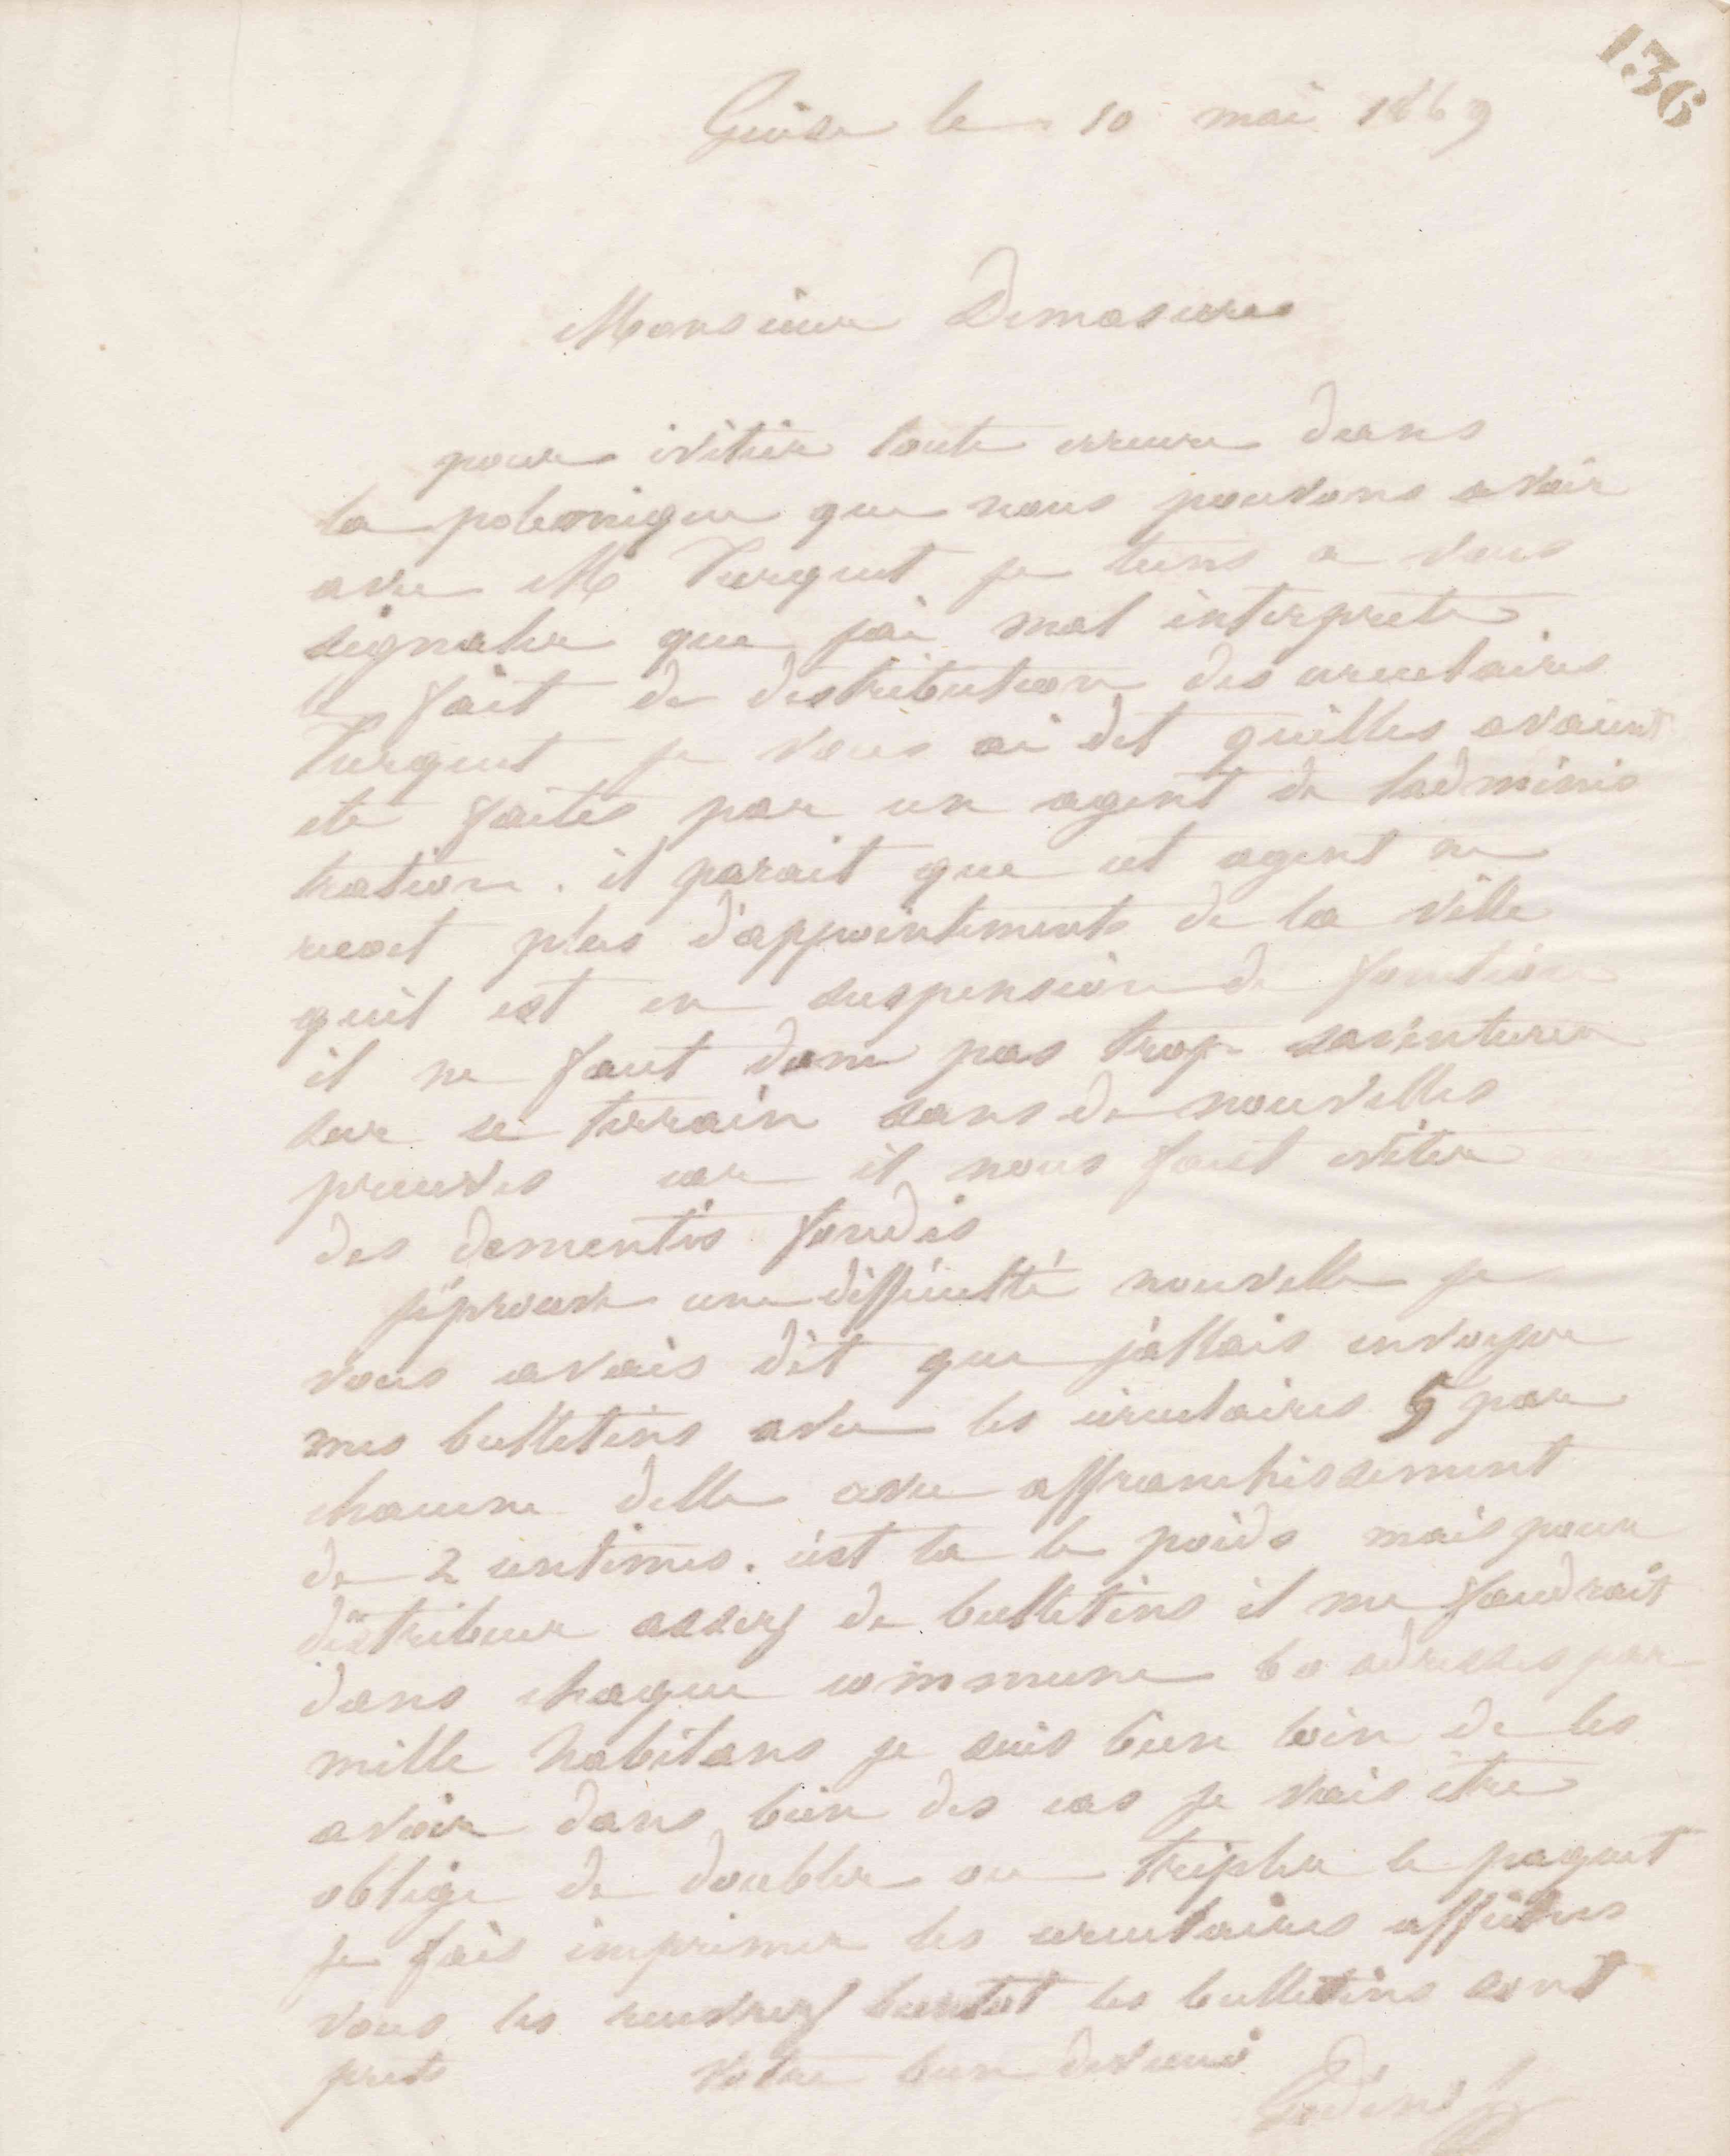 136
Guise le 10 mai 1869
Monsieur Demasures
pour eviter toute erreur dans
la polemique que nous pouvons avoir
avec M Turquet je tiens a vous
signaler que j'ai mal interprete
le fait de distribution des circulaires
Turquet je vous ai dit quelles avaient
ete faites par un agent de ladminis
tration. il parait que cet agent ne
recoit plus d'appointements de la ville
quil est en suspension de fonction
il ne faut donc pas trop saventurer
sur ce terrain sans de nouvelles
preuves car il nous faut eviter
des dementis fondés
j'éprouve une difficulté nouvelle je
vous avais dit que j'allais envoyer
mes bulletins avec les circulaires 5 par
chacune delle avec affranchissement
de 2 centimes. c'est la le poids mais pour
distribuer assez de bulletins il me faudrait
dans chaque commune 60 adresses par
mille habitans je suis bien loin de les
avoir dans bien des cas je vais être
obligé de doubler ou tripler le paquet
je fais imprimer les circulaires affiches
vous les recevrez bientot les bulletins sont
prets votre bien devoué
Godin